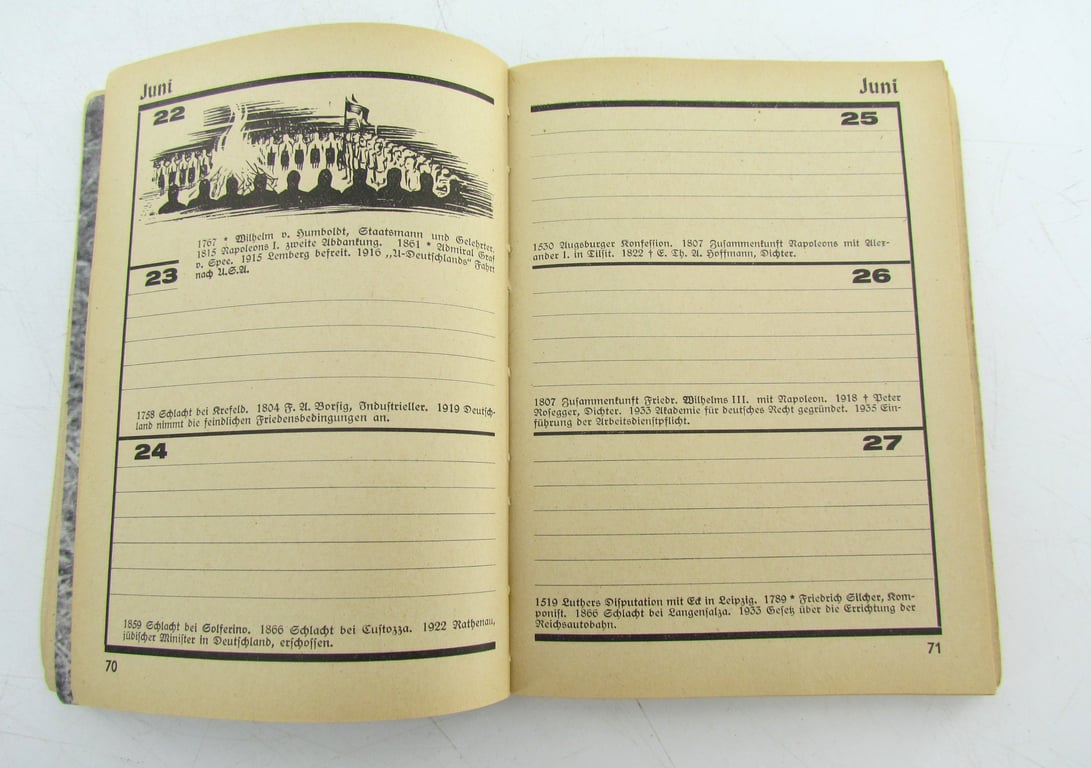 Juni
22
1767 * Wilhelm v. Humboldt, Staatsmann und Gelehrter.
1815 Napoleons I. zweite Abdankung. 1861 * Admiral Graf
v. Spee. 1915 Lemberg befreit. 1916 „U-Deutschlands" Fahrt
nach U.S.A.
23
1758 Schlacht bei Krefeld. 1804 F. A. Borsig, Industrieller. 1919 Deutsch-
land nimmt die feindlichen Friedensbedingungen an.
24
1859 Schlacht bei Solferino. 1866 Schlacht bei Custozza. 1922 Rathenau,
jüdischer Minister in Deutschland, erschossen.
70
Juni
25
1530 Augsburger Konfession. 1807 Zusammenkunft Napoleons mit Alex-
ander I. in Tilsit. 1822 † E. Th. A. Hoffmann, Dichter.
26
1807 Zusammenkunft Friedr. Wilhelms III. mit Napoleon. 1918 † Peter
Rosegger, Dichter. 1933 Akademie für deutsches Recht gegründet. 1935 Ein-
führung der Arbeitsdienstpflicht.
27
1519 Luthers Disputation mit Eck in Leipzig. 1789 * Friedrich Silcher, Kom-
ponist. 1866 Schlacht bei Langensalza. 1933 Gesetz über die Errichtung der
Reichsautobahn.
71